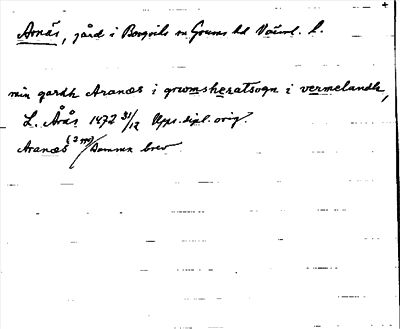 Arnäs, gård i Borgviks sn Grums hd Värml. l.
min gardh Aranæs i gromshæratsogn i vermelandh,
L. Årås 1472 31/12 Upps. dipl. orig.
Aranæs (2 ggr) / Samma brev